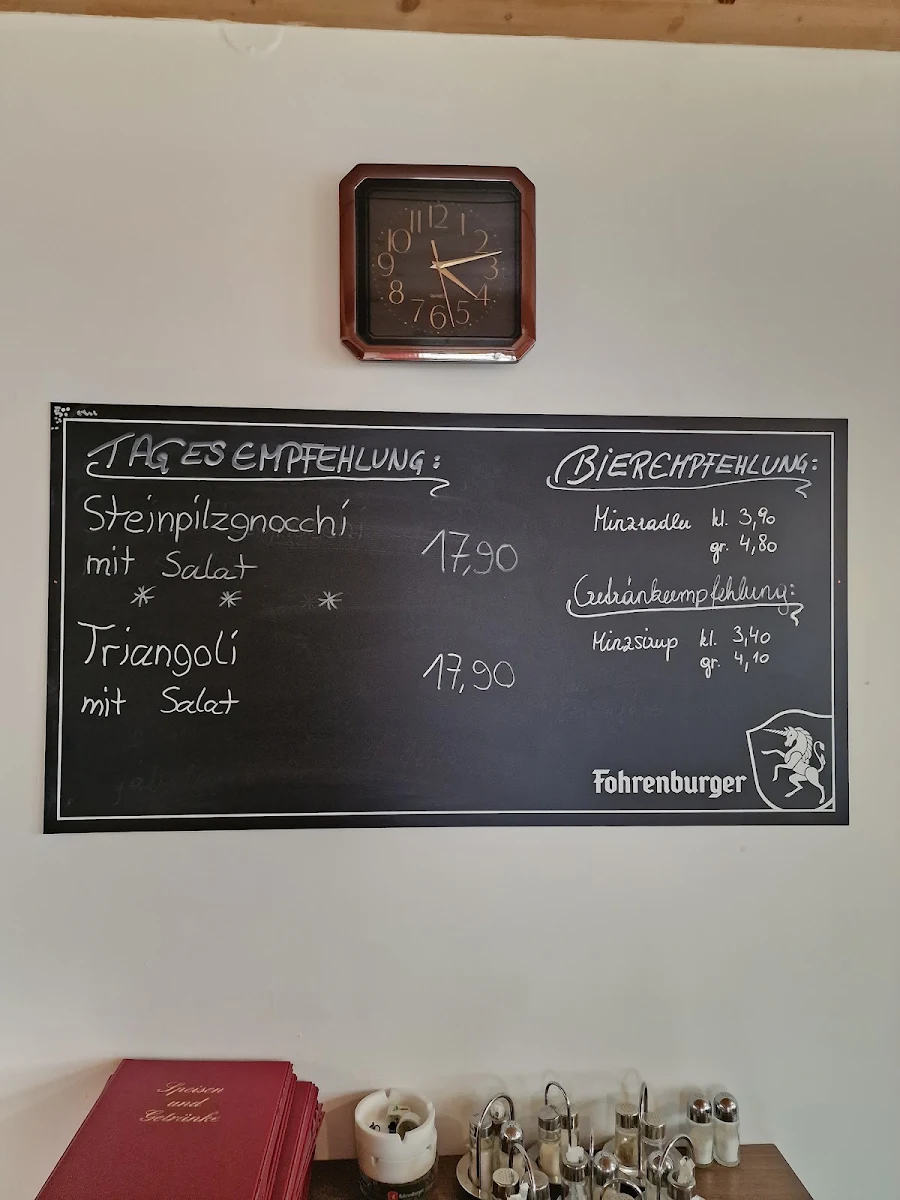 12
11 1
10 2
9 3
8 4
7 6 5
QUARTZ
TAGESEMPFEHLUNG:
Steinpilzgnocchi
mit Salat 17,90
* * *
Triangoli
mit Salat 17,90
BIEREMPFEHLUNG:
Minzradler kl. 3,90
gr. 4,80
Getränkeempfehlung:
Minzsirup kl. 3,40
gr. 4,10
Fohrenburger
Speisen
und
Getränke